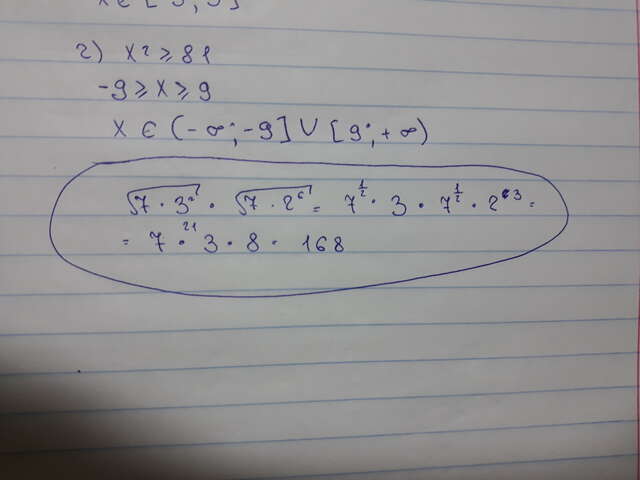 2) x² ≥ 81
-9 ≥ x ≥ 9
x ∈ (-∞; -9] ∪ [9; +∞)
√7·3² · √7·2⁶ = 7^½ · 3 · 7^½ · 2³ =
= 7 · 3 · 8 = 168
21